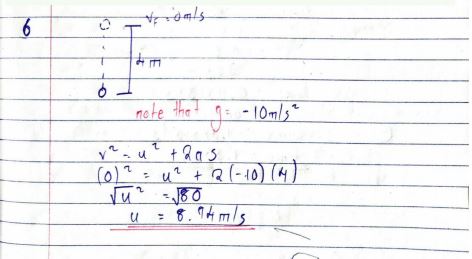 6
v_F = 0m/s
4m
note that g = -10m/s²
v² = u² + 2as
(0)² = u² + 2(-10)(4)
√u² = √80
u = 8.94m/s